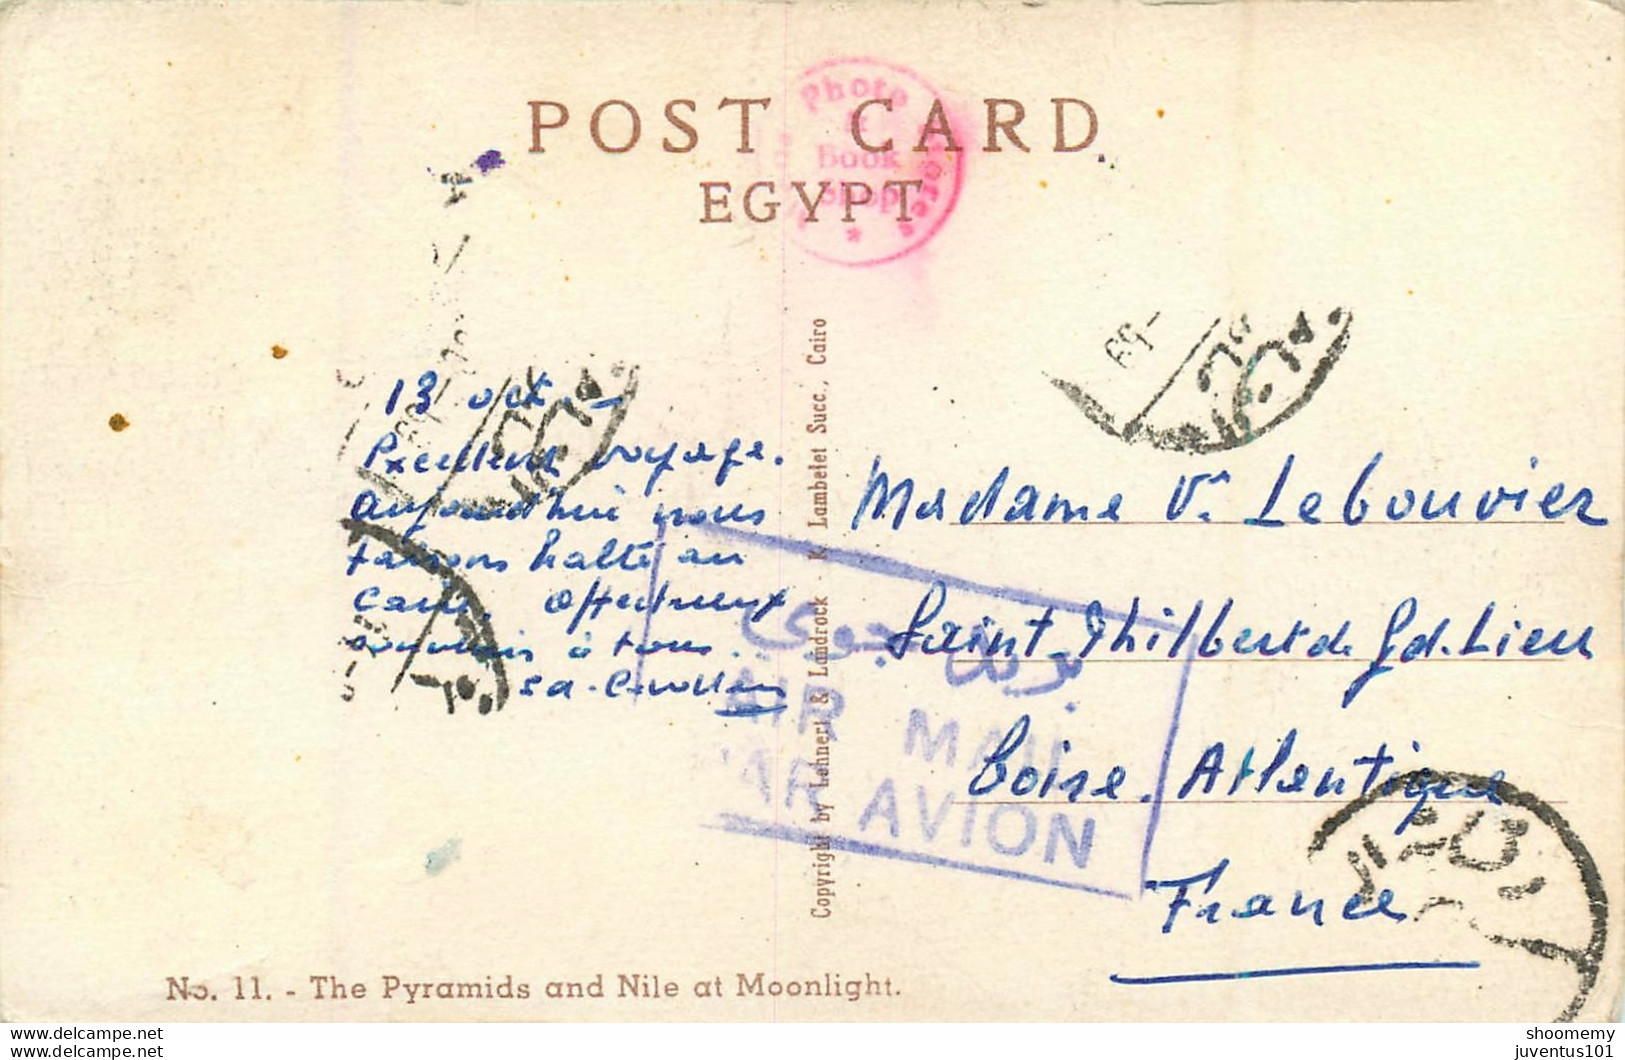 POST CARD
EGYPT
Photo
Stores
Book
Shop
13 oct.
Excellent voyage.
Aujourdhui nous
faisons halte au
Caire. Affectueux
souvenirs à tous.
Copyright by Lehnert & Landrock - K Lambelet Succ., Cairo
Madame Ve Lebouvier
Saint-Philbert de Gd. Lieu
Loire. Atlantique
France
بريد جوى
AIR MAIL
PAR AVION
No. 11. - The Pyramids and Nile at Moonlight.
shoomemy
juventus101